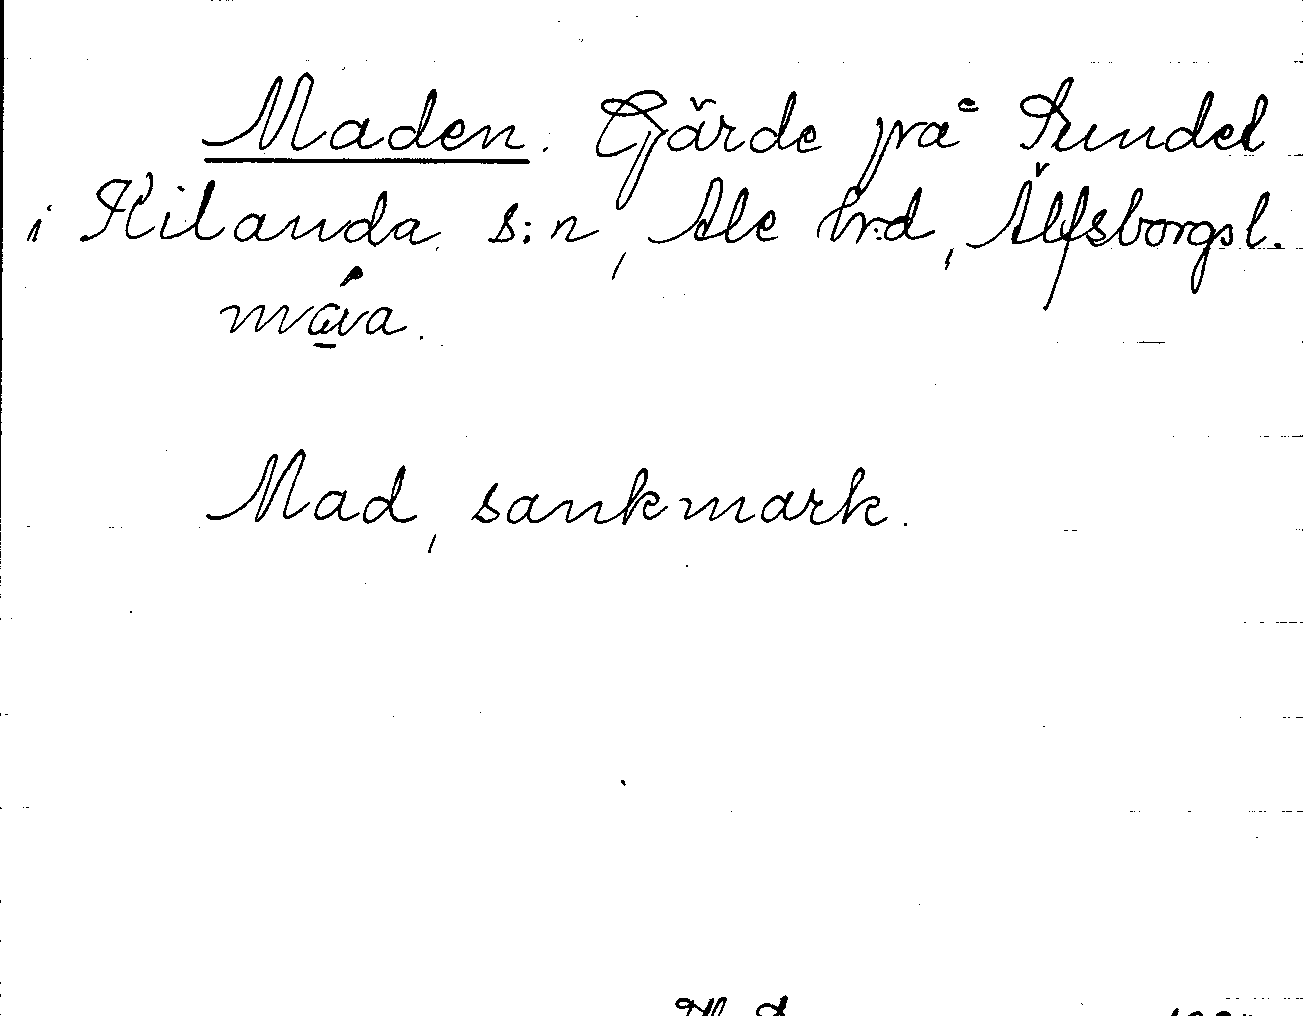 Maden. Gjärde på Sundet
i Kilanda s:n, Ale hrd, Älfsborgs l.
Mad, sankmark.